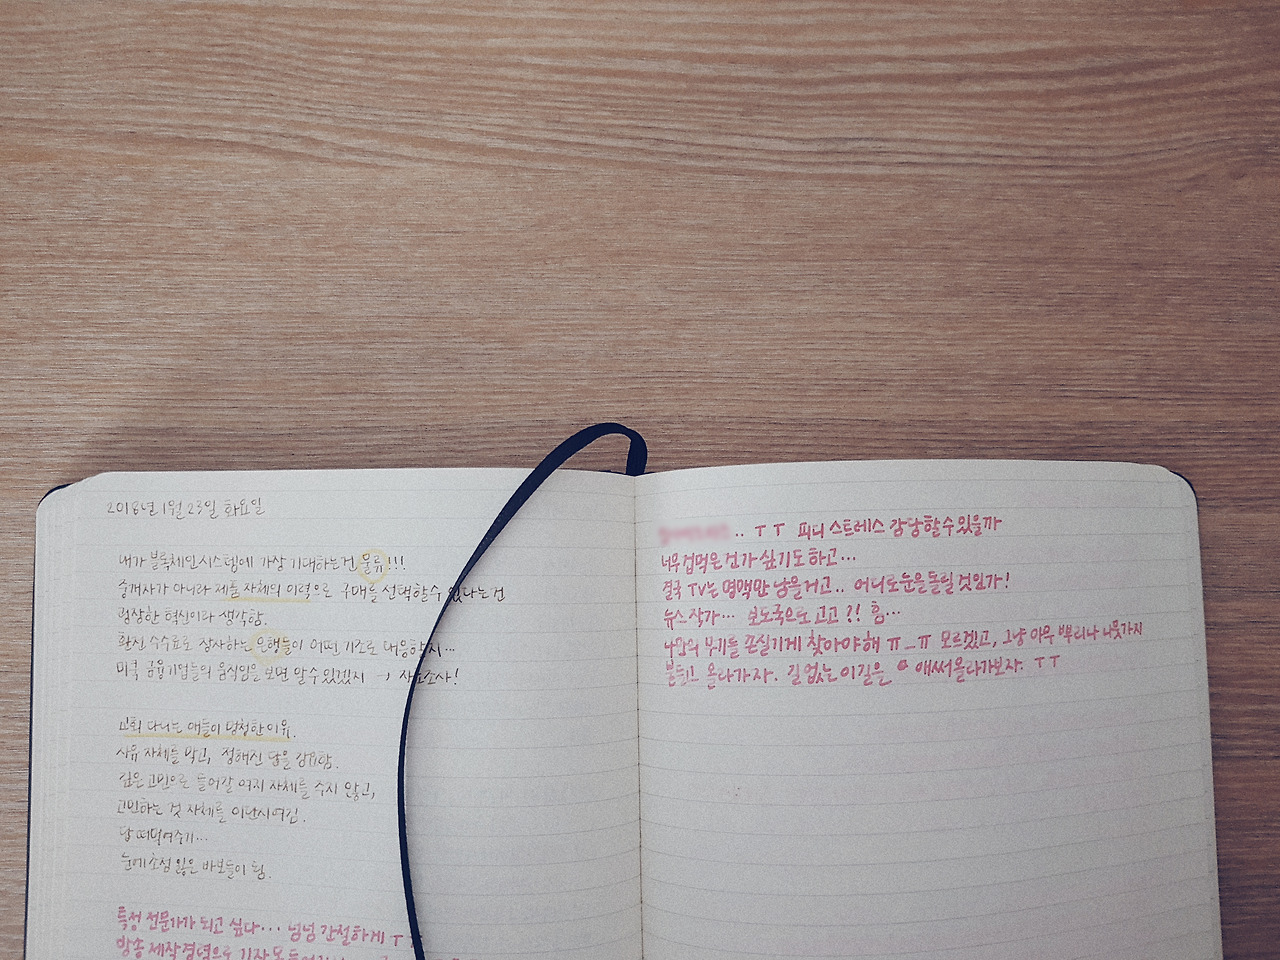 2018년 1월 23일 화요일
내가 블록체인시스템에 가장 기대하는건 물류!!!
중개자가 아니라 제품 자체의 이력으로 구매를 선택할수 있다는건
굉장한 혁신이라 생각함.
환전 수수료로 장사하는 은행들이 어떠 기조로 대응할지...
미국 금융기업들의 움직임을 보면 알 수 있겠지 → 자료조사!
교회 다니는 애들이 멍청한 이유.
사유 자체를 막고, 정해진 답을 강요함.
깊은 고민으로 들어갈 여지 자체를 주지 않고,
고민하는 것 자체를 이단시여김.
답 떠먹여주기...
눈에 초점 잃은 바보들이 됨.
특정 전문가가 되고 싶다... 넘넘 간절하게 ㅜ
방송 제작경력으로 기자
.. ㅜㅜ 피디 스트레스 감당할 수 있을까
너무 겁먹은 건가 싶기도 하고...
결국 TV는 명맥만 남을거고.. 어디로 눈을 돌릴 것인가!
뉴스 작가... 보도국으로 고고?! 흠...
나만의 무기를 끈질기게 찾아야해 ㅠ_ㅠ 모르겠고, 그냥 아무 뿌리나 나뭇가지
붙들고 올라가자. 길 없는 이 길을 애써 올라가보자. ㅜㅜ